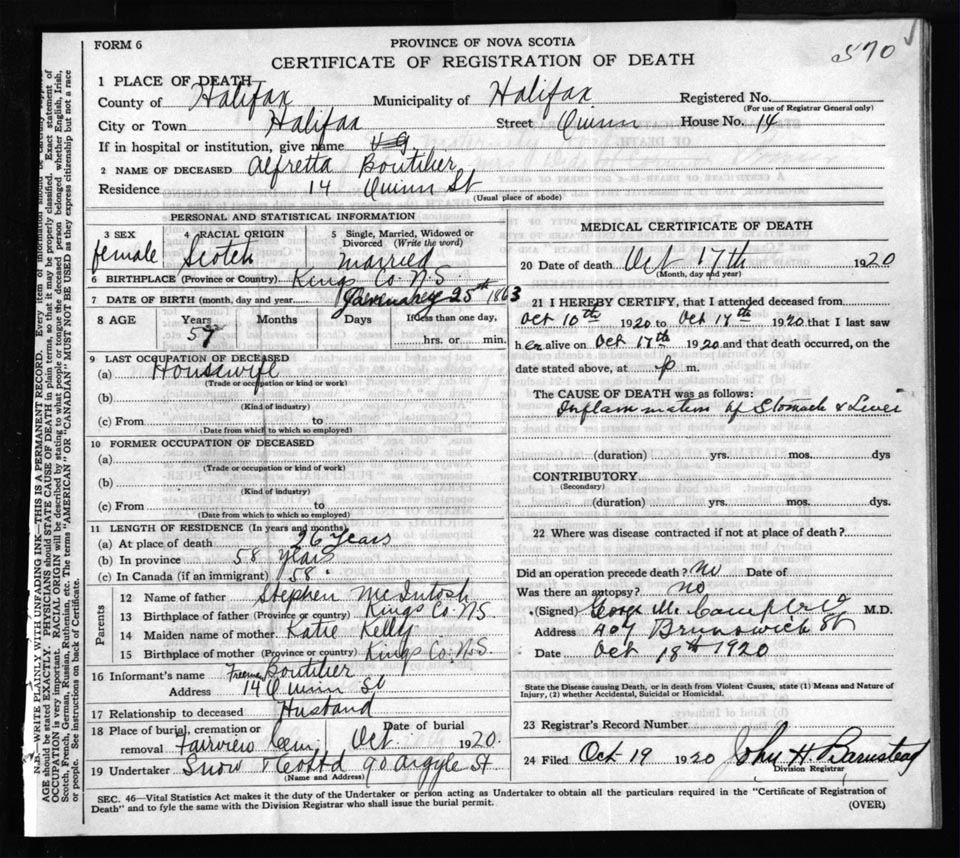 FORM 6
PROVINCE OF NOVA SCOTIA
570
CERTIFICATE OF REGISTRATION OF DEATH
1 PLACE OF DEATH
County of Halifax Municipality of Halifax Registered No.
(For use of Registrar General only)
City or Town Halifax Street Quinn House No. 14
If in hospital or institution, give name
2 NAME OF DECEASED Alfretta Boutilier
Residence 14 Quinn St
(Usual place of abode)
PERSONAL AND STATISTICAL INFORMATION
3 SEX female
4 RACIAL ORIGIN Scotch
5 Single, Married, Widowed or Divorced (Write the word) married
6 BIRTHPLACE (Province or Country) Kings Co. N.S.
7 DATE OF BIRTH (month, day and year 25th 1863
8 AGE Years Months Days If less than one day,
57 hrs. or min.
9 LAST OCCUPATION OF DECEASED
(a) Housewife
(Trade or occupation or kind or work)
(b)
(Kind of industry)
(c) From to
(Date from which to which so employed)
10 FORMER OCCUPATION OF DECEASED
(a)
(Trade or occupation or kind of work)
(b)
(Kind of industry)
(c) From to
(Date from which to which so employed)
11 LENGTH OF RESIDENCE (In years and months)
(a) At place of death 26 Years
(b) In province 58 years
(c) In Canada (if an immigrant) 58 "
Parents
12 Name of father Stephen McIntosh
13 Birthplace of father (Province or country) Kings Co. N.S
14 Maiden name of mother Katie Kelly
15 Birthplace of mother (Province or country) Kings Co. N.S.
16 Informant's name Freeman Boutilier
Address 14 Quinn St
17 Relationship to deceased Husband
18 Place of burial, cremation or removal Fairview Cem Date of burial Oct. 1920.
19 Undertaker Snow & Co Ltd 90 Argyle St
(Name and Address)
MEDICAL CERTIFICATE OF DEATH
20 Date of death Oct 17th 1920
(Month, day and year)
21 I HEREBY CERTIFY, that I attended deceased from
Oct 10th 1920 to Oct 17th 1920 that I last saw
h er alive on Oct 17th 1920 and that death occurred, on the
date stated above, at p m.
The CAUSE OF DEATH was as follows:
Inflammation of Stomach & Liver
(duration) yrs. mos. dys
CONTRIBUTORY
(Secondary)
(duration) yrs. mos. dys.
22 Where was disease contracted if not at place of death?
Did an operation precede death? No Date of
Was there an autopsy? no
(Signed) George M. Campbell M.D.
Address 407 Brunswick St
Date Oct 18th 1920
State the Disease causing Death, or in death from Violent Causes, state (1) Means and Nature of
Injury, and (2) whether Accidental, Suicidal or Homicidal.
23 Registrar's Record Number
24 Filed Oct 19 1920 John H Barnstead
Division Registrar
SEC. 46—Vital Statistics Act makes it the duty of the Undertaker or person acting as Undertaker to obtain all the particulars required in the "Certificate of Registration of
Death" and to fyle the same with the Division Registrar who shall issue the burial permit.
(OVER)
N.B.—WRITE PLAINLY WITH UNFADING INK—THIS IS A PERMANENT RECORD. Every item of information should be carefully
AGE should be stated EXACTLY. PHYSICIANS should STATE CAUSE OF DEATH in plain terms, so that it may be properly classified. Exact statement of
OCCUPATION is very important. RACIAL ORIGIN will be described by stating to what people or tongue the deceased person belonged, whether English, Irish,
Scotch, French, German, Russian, Ruthenian, etc. The terms "AMERICAN" OR "CANADIAN" MUST NOT BE USED as they express citizenship but not a race
or people. See instructions on back of Certificate.